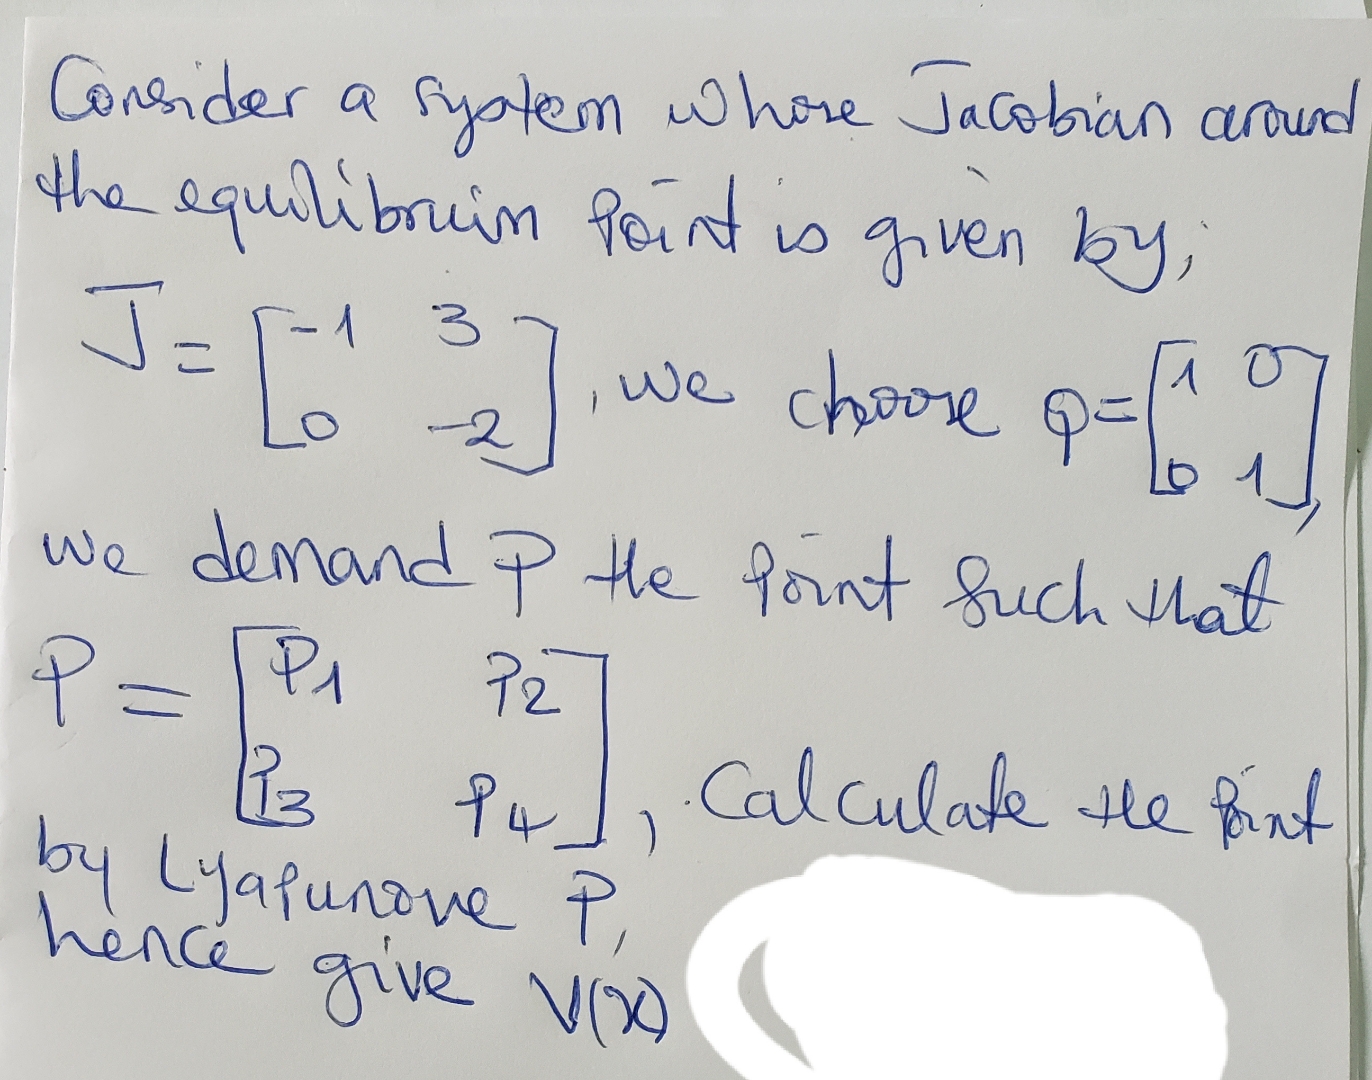 Consider a system whose Jacobian around
the equilibruim point is given by;
J = [-1 3
0 -2], we choose Q = [1 0
0 1],
we demand P the point such that
P = [P1 P2
P3 P4], Calculate the point
by Lyapunove P,
hence give V(x)